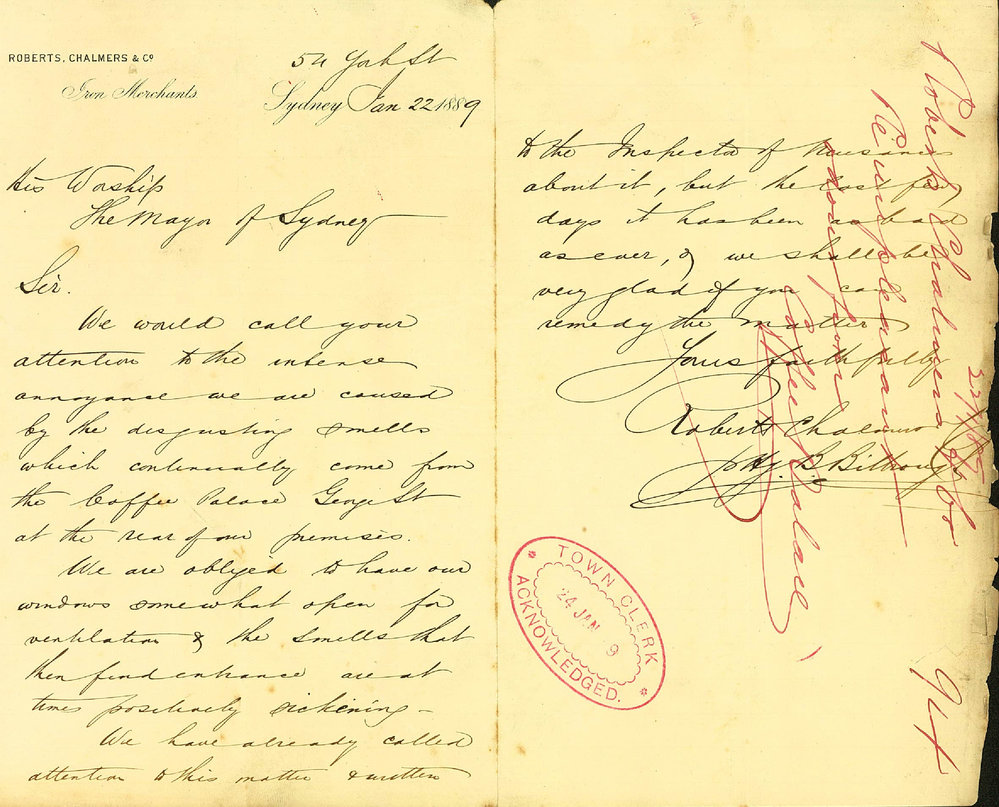 ROBERTS, CHALMERS & Co
Iron Merchants.
54 York St
Sydney Jan 22 1889
His Worship
The Mayor of Sydney
Sir.
We would call your
attention to the intense
annoyance we are caused
by the disgusting smells
which continually come from
the Coffee Palace George St
at the rear of our premises.
We are obliged to have our
windows somewhat open for
ventilation & the smells that
then find entrance are at
times positively sickening –
We have already called
attention to this matter & written
to the Inspector of Nuisances
about it, but the last few
days it has been as bad
as ever, & we shall be
very glad if you can
remedy the matter
Yours faithfully
Roberts Chalmers
p Hy. B. Billough
TOWN CLERK
24 JAN 9
ACKNOWLEDGED.
Roberts Chalmers & Co
22/1/89
Re unpleasant
odour from
Coffee Palace
94